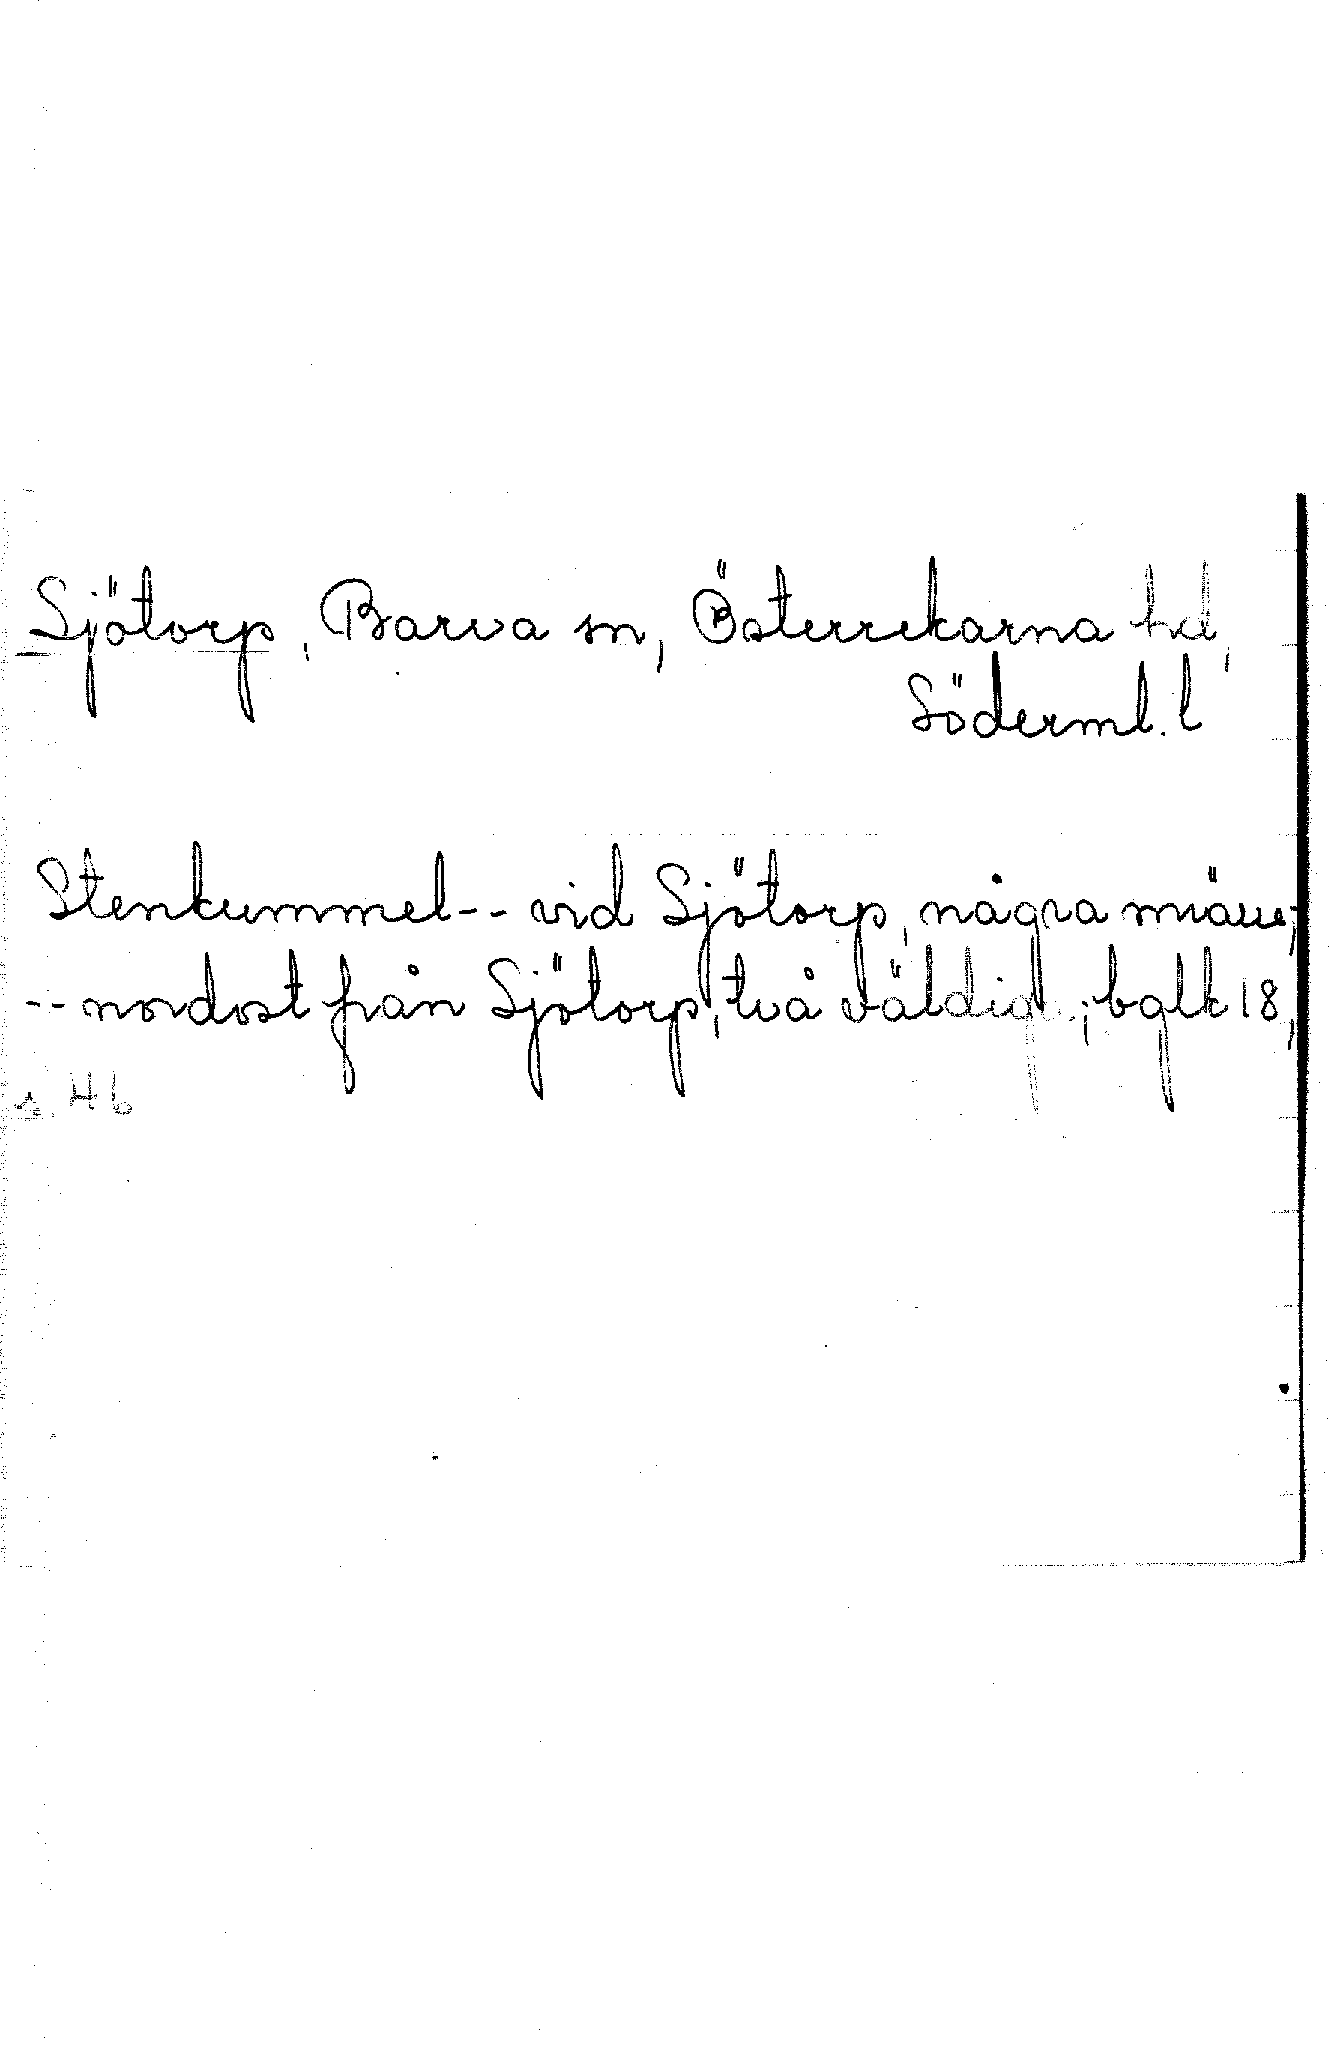 Sjötorp, Barva sn, Österrekarna hd,
Söderml. l
Stenkummel-- vid Sjötorp, några mäns;
-- nordost från Sjötorp, två väldiga; bglk 18,
s. 46